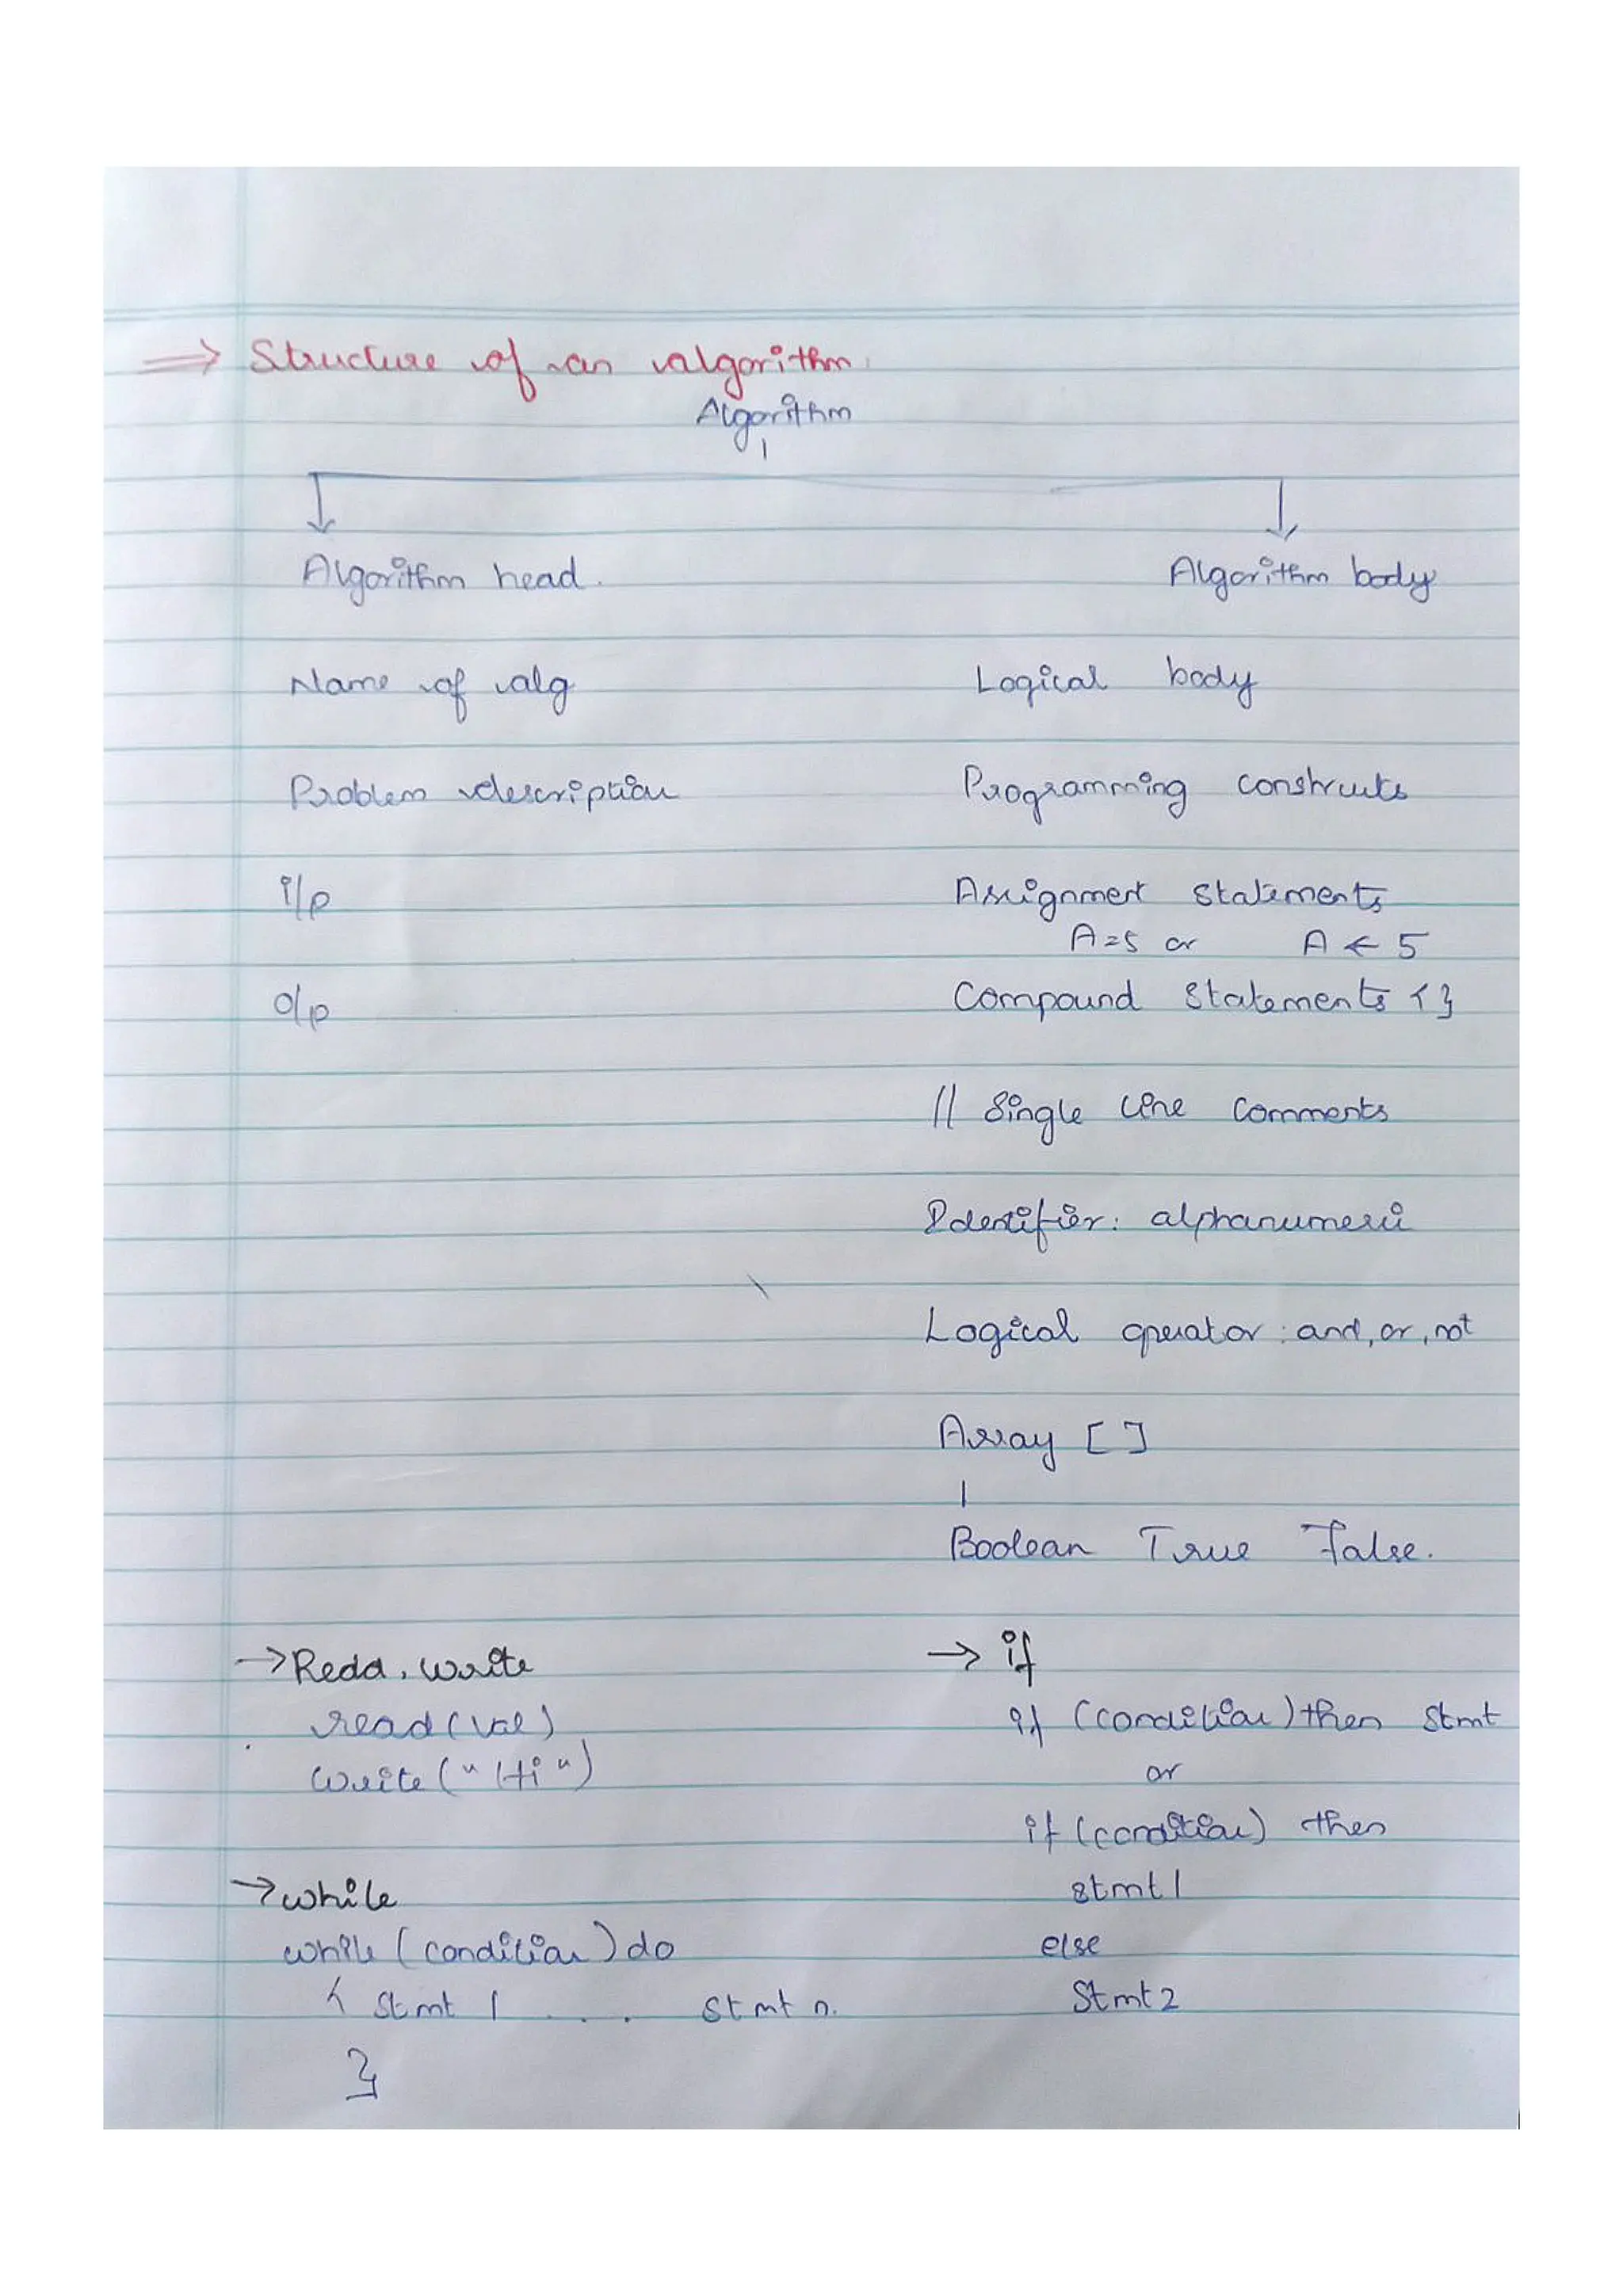 ⇒ Structure of an algorithm:
Algorithm
Algorithm head. Algorithm body
Name of alg Logical body
Problem description Programming constructs
i/p Assignment statements
A=5 or A ← 5
o/p Compound statements { }
// Single line comments
Identifier: alphanumeric
Logical operator: and, or, not
Array [ ]
Boolean True False.
→ Redd, write → if
read(val) if (condition) then stmt
write("Hi") or
if (condition) then
→ while stmt 1
while (condition) do else
{ stmt 1 . . . stmt n. Stmt 2
}